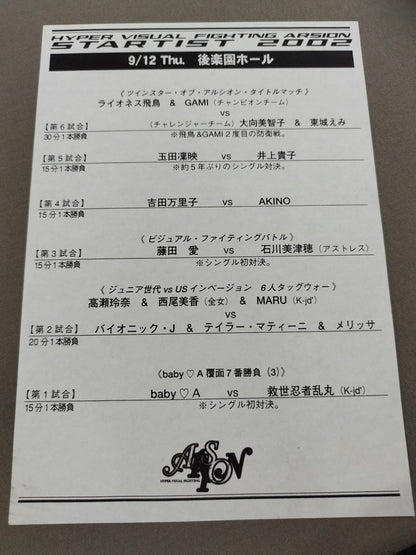 HYPER VISUAL FIGHTING ARSION
STARTIST 2002
9/12 Thu. 後楽園ホール
《 ツインスター・オブ・アルシオン・タイトルマッチ 》
ライオネス飛鳥 & GAMI（チャンピオンチーム）
vs
【第6試合】 （チャレンジャーチーム）大向美智子 & 東城えみ
30分1本勝負 ※飛鳥&GAMI2度目の防衛戦。
【第5試合】 玉田凜映 vs 井上貴子
15分1本勝負 ※約5年ぶりのシングル対決。
【第4試合】 吉田万里子 vs AKINO
15分1本勝負
《 ビジュアル・ファイティングバトル 》
【第3試合】 藤田 愛 vs 石川美津穂（アストレス）
15分1本勝負 ※シングル初対決。
《 ジュニア世代 vs US インベージョン 6人タッグウォー 》
高瀬玲奈 & 西尾美香（全女） & MARU（K-jd'）
vs
【第2試合】 バイオニック・J & テイラー・マティーニ & メリッサ
20分1本勝負
《baby♡A覆面7番勝負（3）》
【第1試合】 baby♡A vs 救世忍者乱丸（K-jd'）
15分1本勝負 ※シングル初対決。
ARSION
HYPER VISUAL FIGHTING